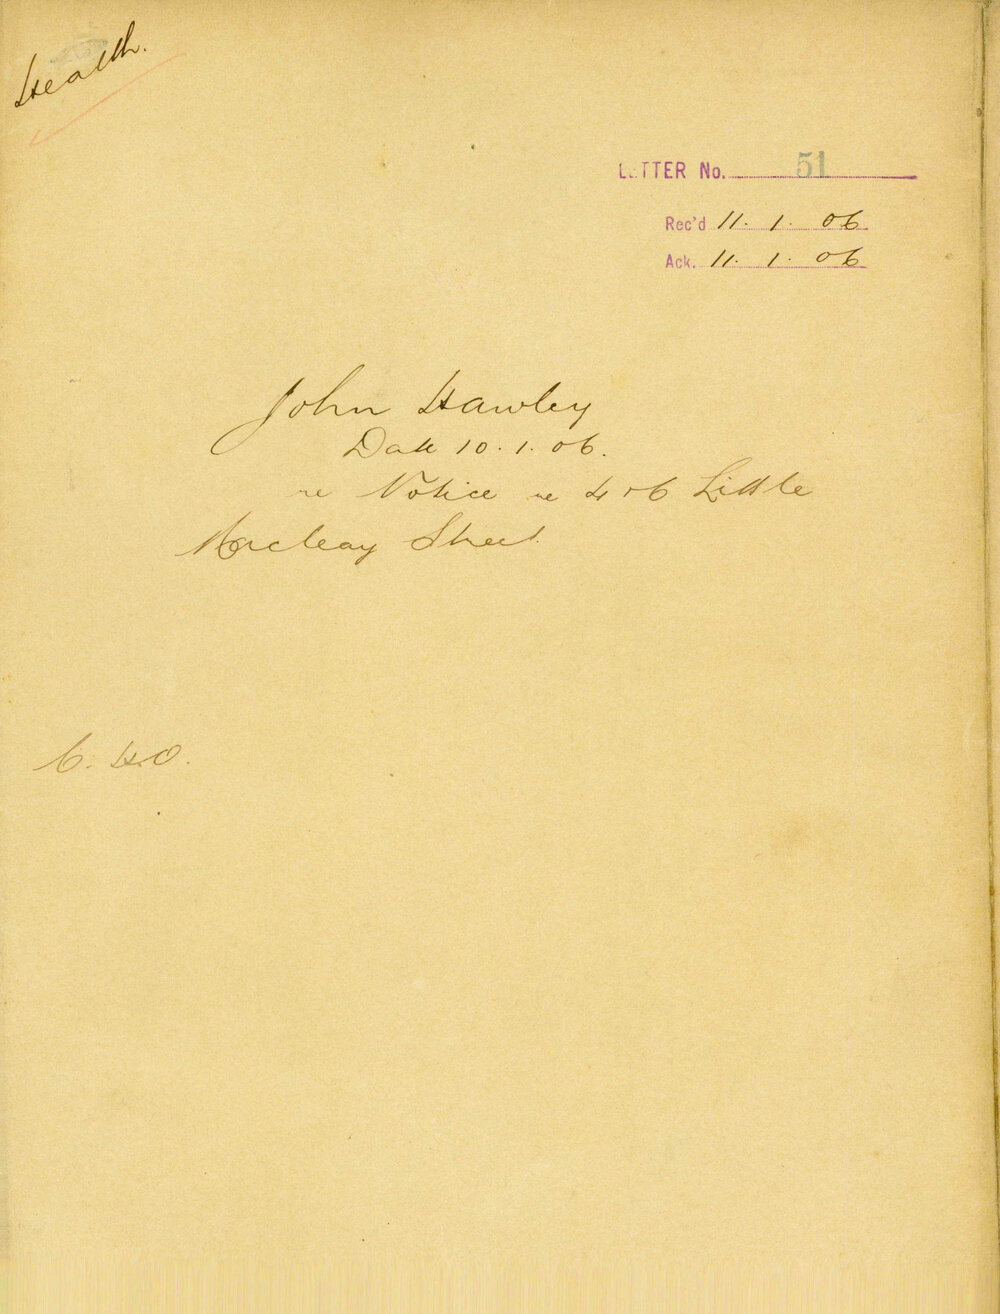 Health.
LETTER No. 51
Rec'd 11. 1. 06
Ack. 11. 1. 06
John Hawley
Date 10. 1. 06.
re Notice re 4 & 6 Little
Macleay Street
C. H.O.